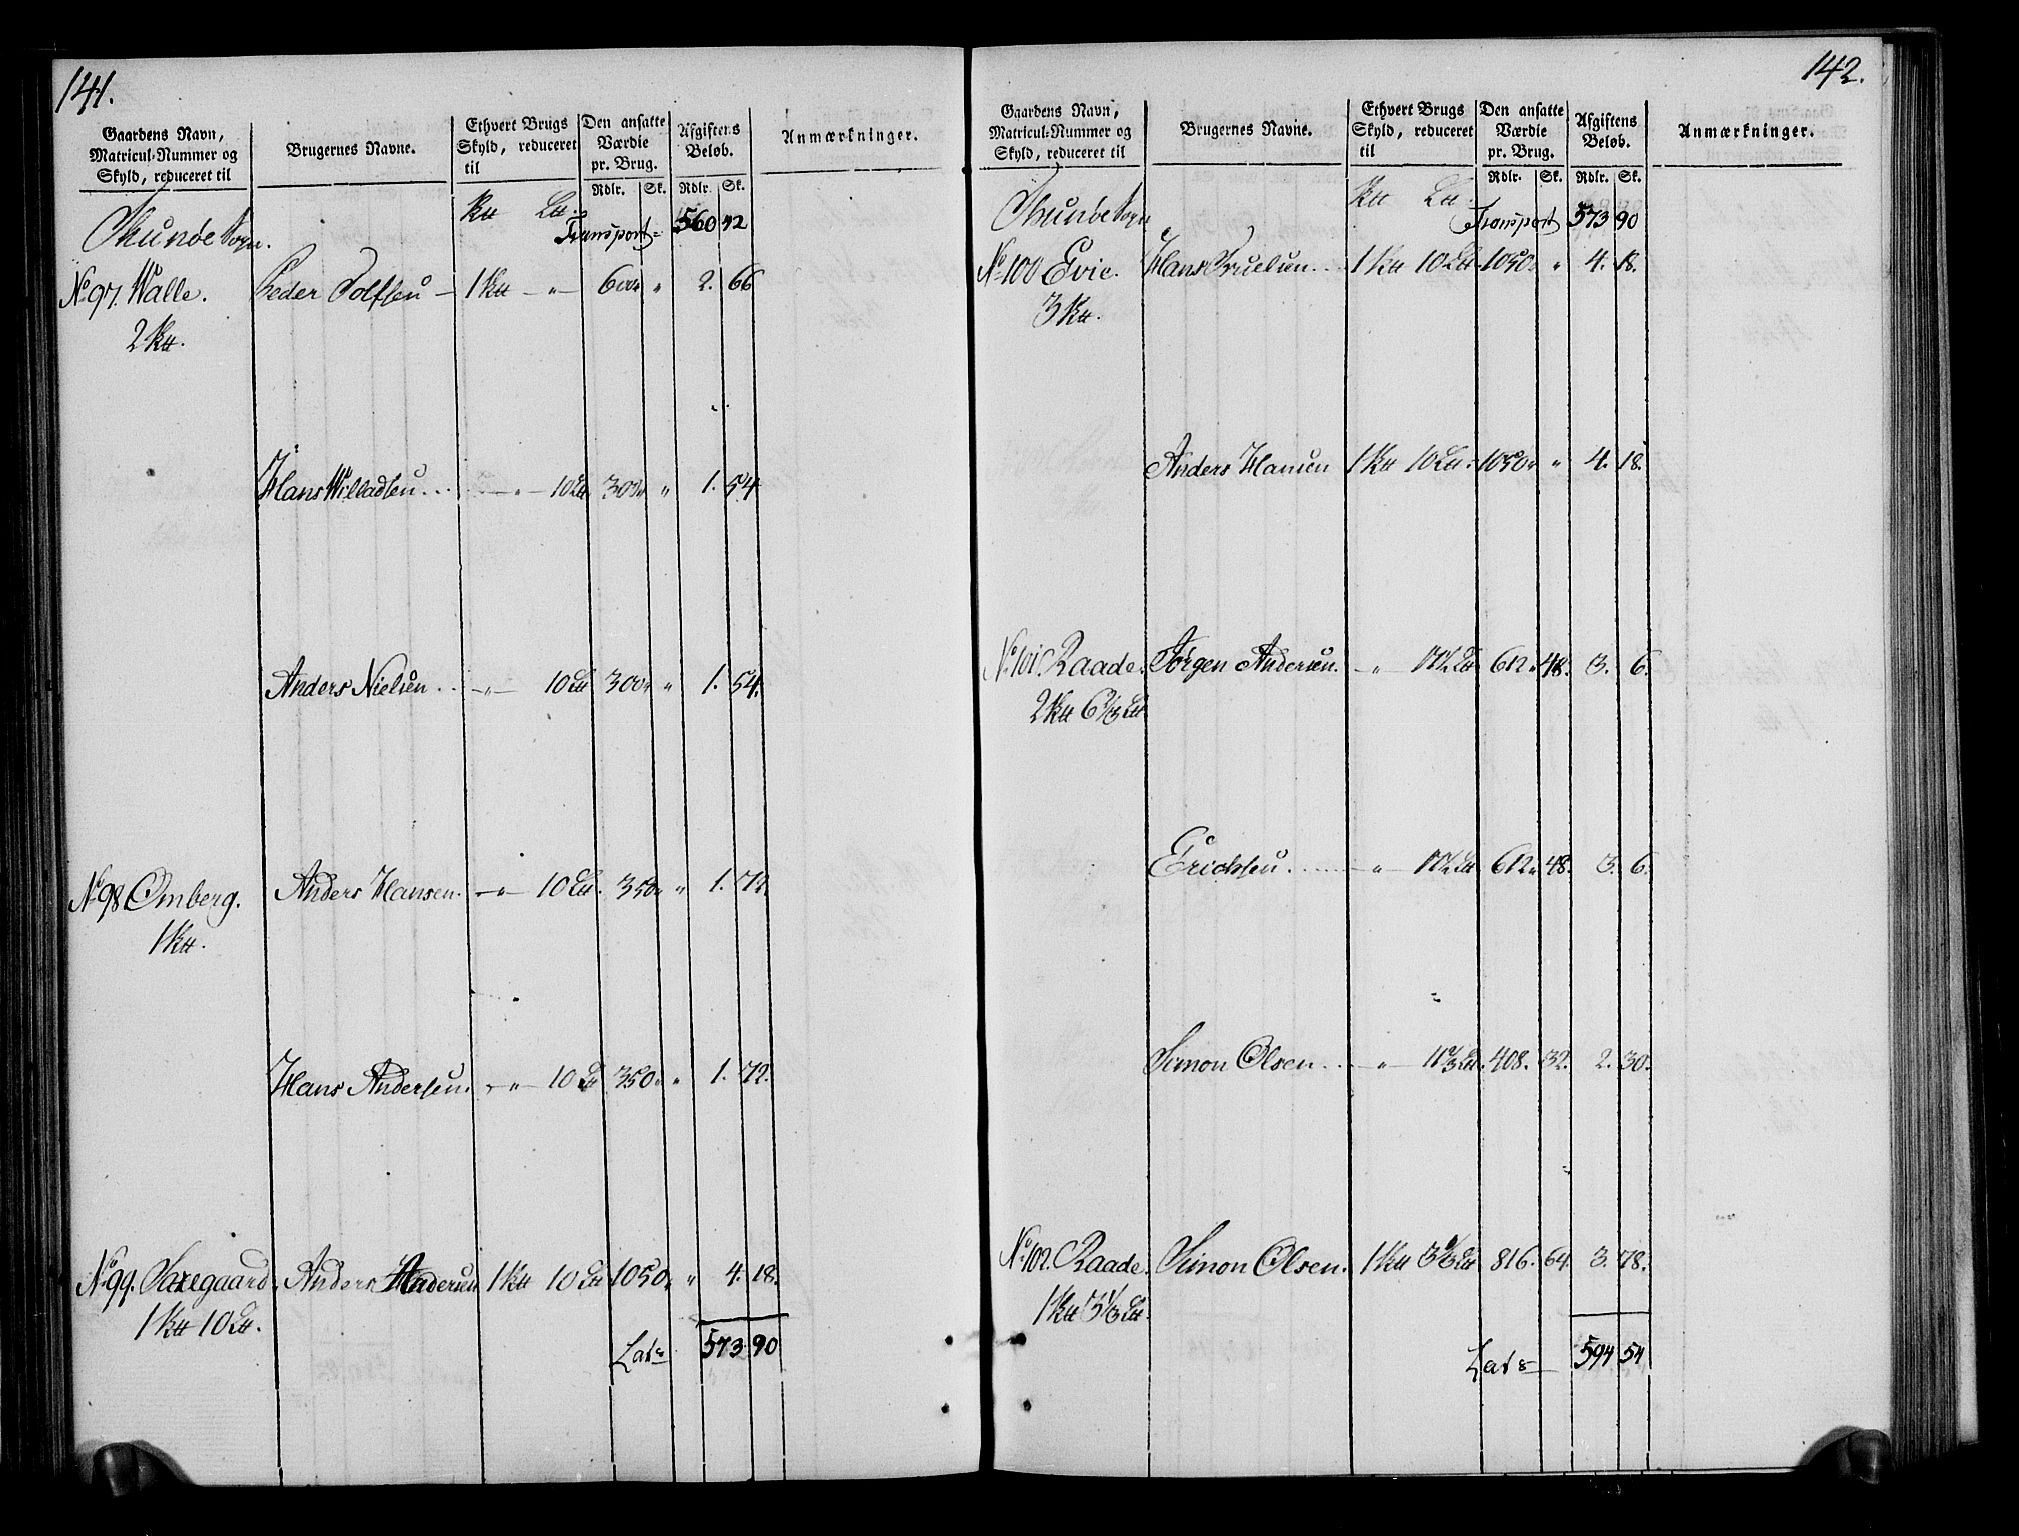 141.
Gaardens Navn, Matricul-Nummer og Skyld, reduceret til
Brugernes Navne.
Ethvert Brugs Skyld, reduceret til
Den ansatte Værdie pr. Brug.
Afgiftens Beløb.
Anmærkninger.
Rdlr. Sk. Rdlr. Sk.
Sogn. Transport 560 42
No 97. Walle. Peder Tolfsen 1 600 " 2. 66
2
Hans Willadsen " 10 300 " 1. 54
Anders Nielsen " 10 300 " 1. 54.
No 98 Omberg. Anders Hansen. " 10 350 " 1. 72.
1
Hans Andersen. " 10 350 " 1. 72.
No 99. Saxegaard. Anders Andersen 1 10 1050 " 4. 18.
1 10
Lats 573 90
142.
Gaardens Navn, Matricul-Nummer og Skyld, reduceret til
Brugernes Navne.
Ethvert Brugs Skyld, reduceret til
Den ansatte Værdie pr. Brug.
Afgiftens Beløb.
Anmærkninger.
Rdlr. Sk. Rdlr. Sk.
Sogn Transport 573 90
No 100 Evie. Hans Truelsen 1 10 1050 " 4. 18.
3
Anders Hansen 1 10 1050 " 4. 18.
No 101. Raade. Jörgen Andersen. " 612 48. 3. 6.
2 6 2/3
Erichsen " 612 48. 3. 6.
Simon Olsen " 11 2/3 408. 32. 2. 30.
No 102. Raade. Simon Olsen. 1 3 1/3 816. 64. 3. 78.
1 3 1/3
Lats 594 54